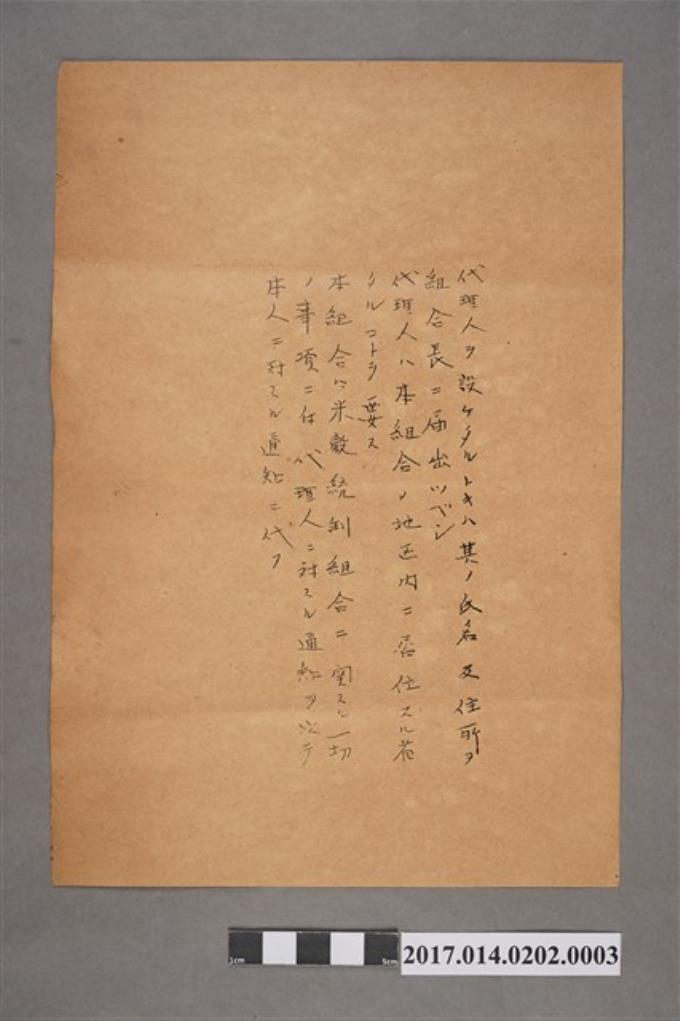 代理人ヲ設ケタルトキハ其ノ氏名及住所ヲ
組合長ニ届出ツベシ
代理人ハ本組合ノ地区内ニ居住スル者
タルコトヲ要ス
本組合ハ米穀統制組合ニ関スル一切
ノ事項ニ付代理人ニ対スル通知ヲ以テ
本人ニ対スル通知ニ代フ
1cm
5cm
2017.014.0202.0003